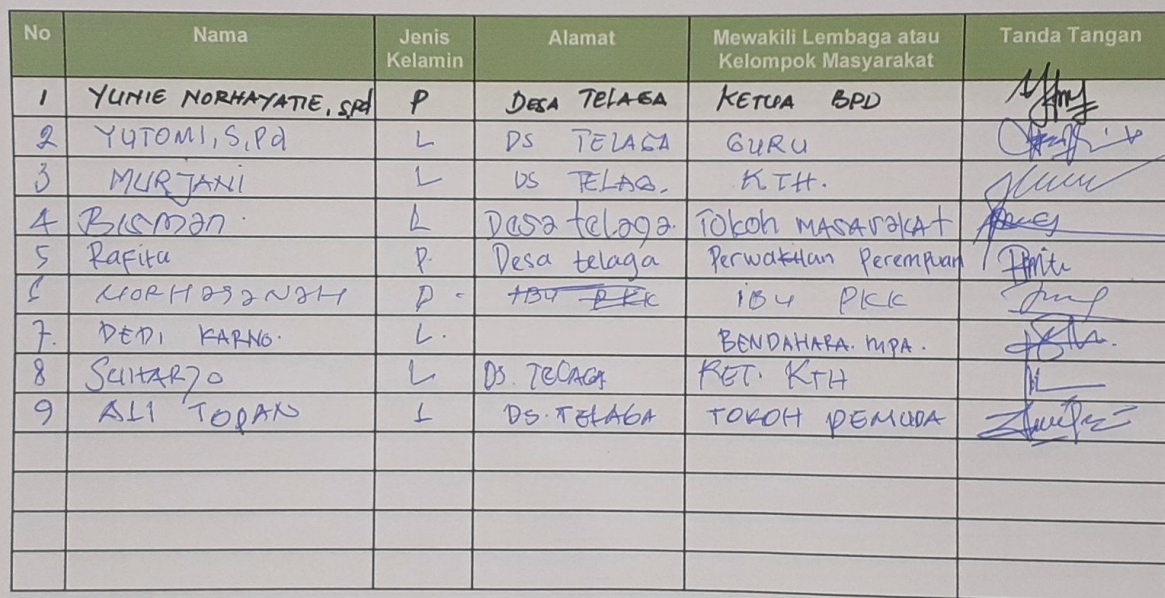 No Nama Jenis Kelamin Alamat Mewakili Lembaga atau Kelompok Masyarakat Tanda Tangan
1 YUNIE NORHAYATIE, SPd P DESA TELAGA KETUA BPD
2 YUTOMI, S,Pd L DS TELAGA GURU
3 MURJANI L DS TELAG. KTH.
4 BISMAN. L Desa telaga. Tokoh MASAraKAt
5 Rafita P. Desa telaga Perwakilan Perempuan
6 NORHASANAH P. IBU PKK IBU PKK
7. DEDI KARNO. L. BENDAHARA. MPA.
8 SUHARJO L DS. TELAGA KET. KTH
9 ALI TOPAN L DS. TELAGA TOKOH PEMUDA